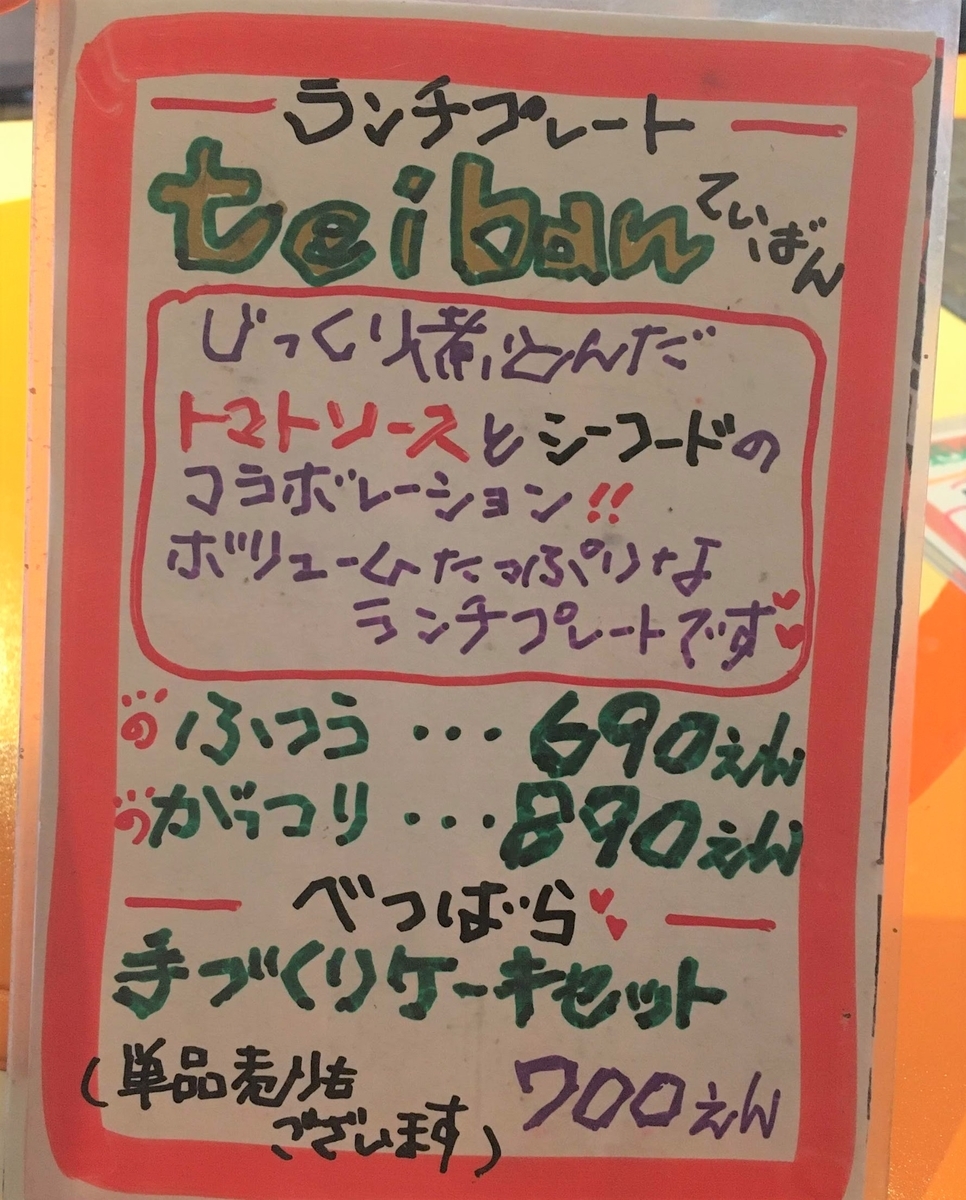 ランチプレート
teiban ていばん
じっくり煮込んだ
トマトソースとシーフードの
コラボレーション!!
ボリュームたっぷりな
ランチプレートです
ふつう・・・690えん
がっつり・・・890えん
べつばら
手づくりケーキセット
(単品売りも
ございます)
700えん